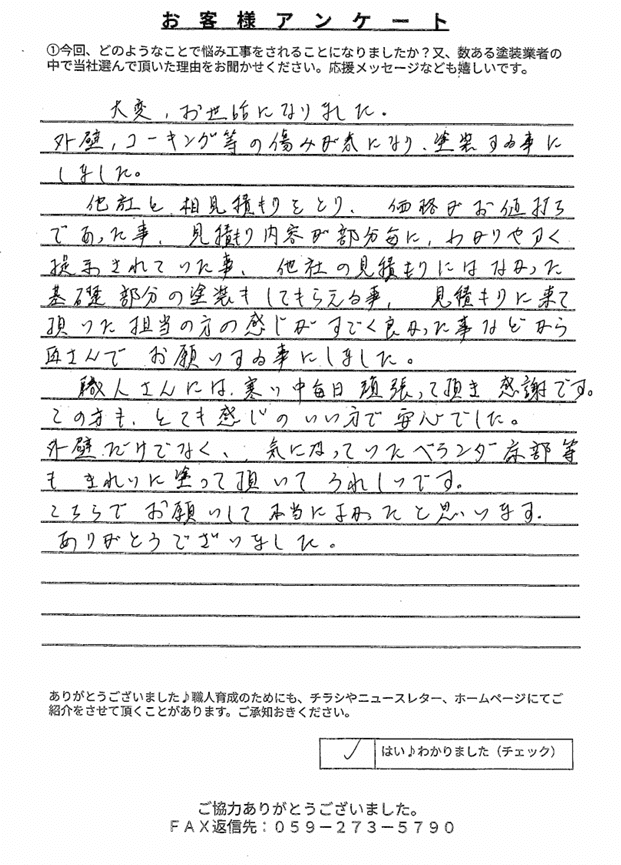 お客様アンケート
①今回、どのようなことで悩み工事をされることになりましたか？又、数ある塗装業者の
中で当社選んで頂いた理由をお聞かせください。応援メッセージなども嬉しいです。
大変、お世話になりました。
外壁、コーキング等の傷みが気になり、塗装する事に
しました。
他社と相見積もりをとり、価格がお値打ち
であった事、見積もり内容が部分毎に、わかりやすく
提示されていた事、他社の見積もりにはなかった
基礎部分の塗装もしてもらえる事、見積もりに来て
頂いた担当の方の感じがすごく良かった事などから
さんでお願いする事にしました。
職人さんには、寒い中毎日頑張って頂き感謝です。
この方も、とても感じのいい方で安心でした。
外壁だけでなく、気になっていたベランダ床部等
もきれいに塗って頂いてうれしいです。
こちらでお願いして本当によかったと思います。
ありがとうございました。
ありがとうございました♪職人育成のためにも、チラシやニュースレター、ホームページにてご
紹介をさせて頂くことがあります。ご承知おきください。
✓ はい♪わかりました（チェック）
ご協力ありがとうございました。
ＦＡＸ返信先：０５９－２７３－５７９０